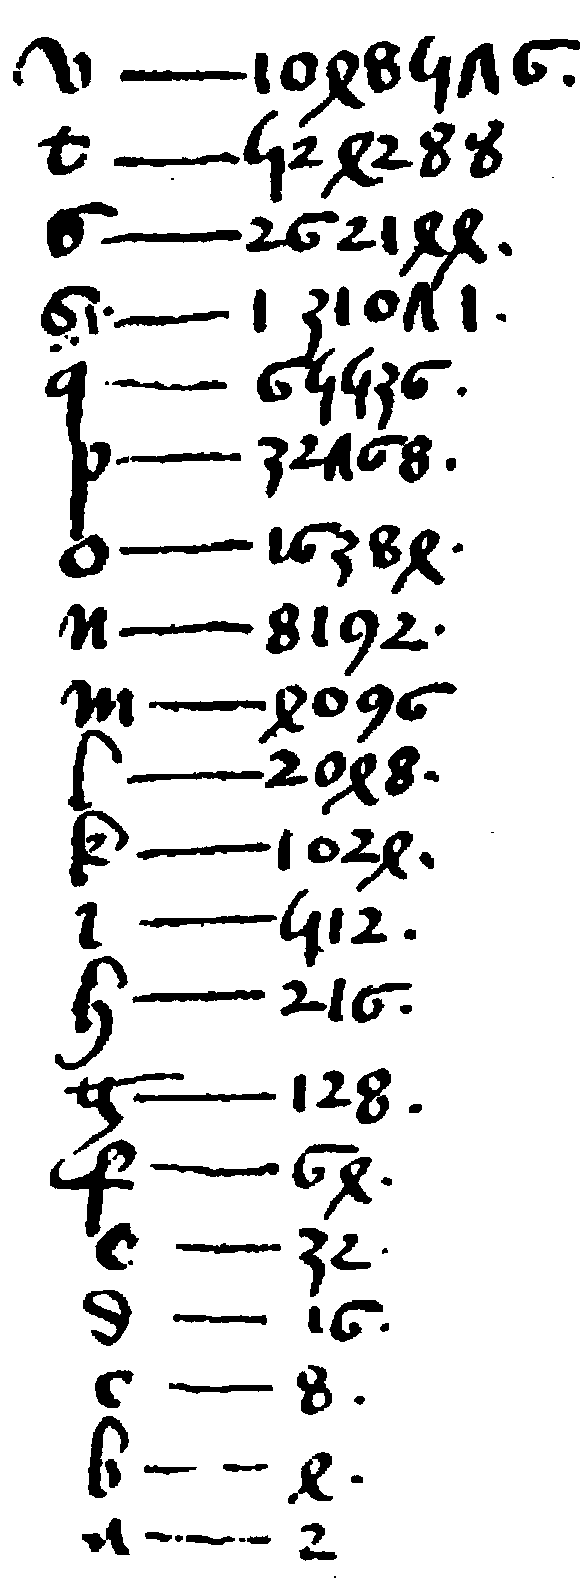 v — 1048576.
t — 524288
s — 262144.
r — 131071.
q — 65536.
p — 32768.
o — 16384.
n — 8192.
m — 4096
l — 2048.
k — 1024.
i — 512.
h — 216.
g — 128.
f — 64.
e — 32.
d — 16.
c — 8.
b — 4.
a — 2